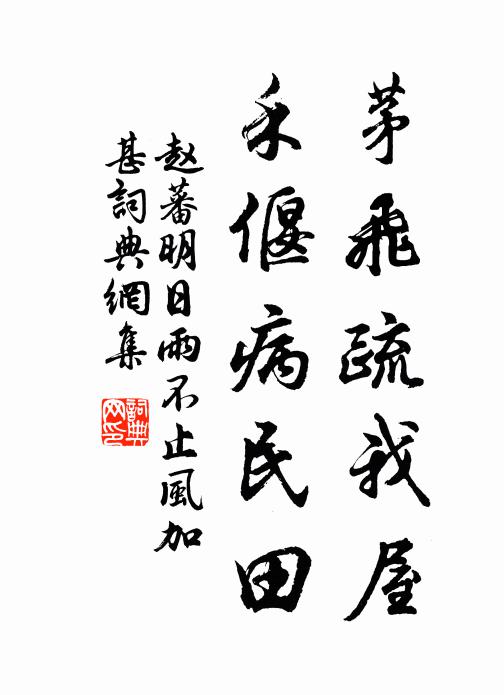 茅飛疏我屋
禾偃病民田
赵蕃明日雨不止風加
甚詞典網集
詞典
网印